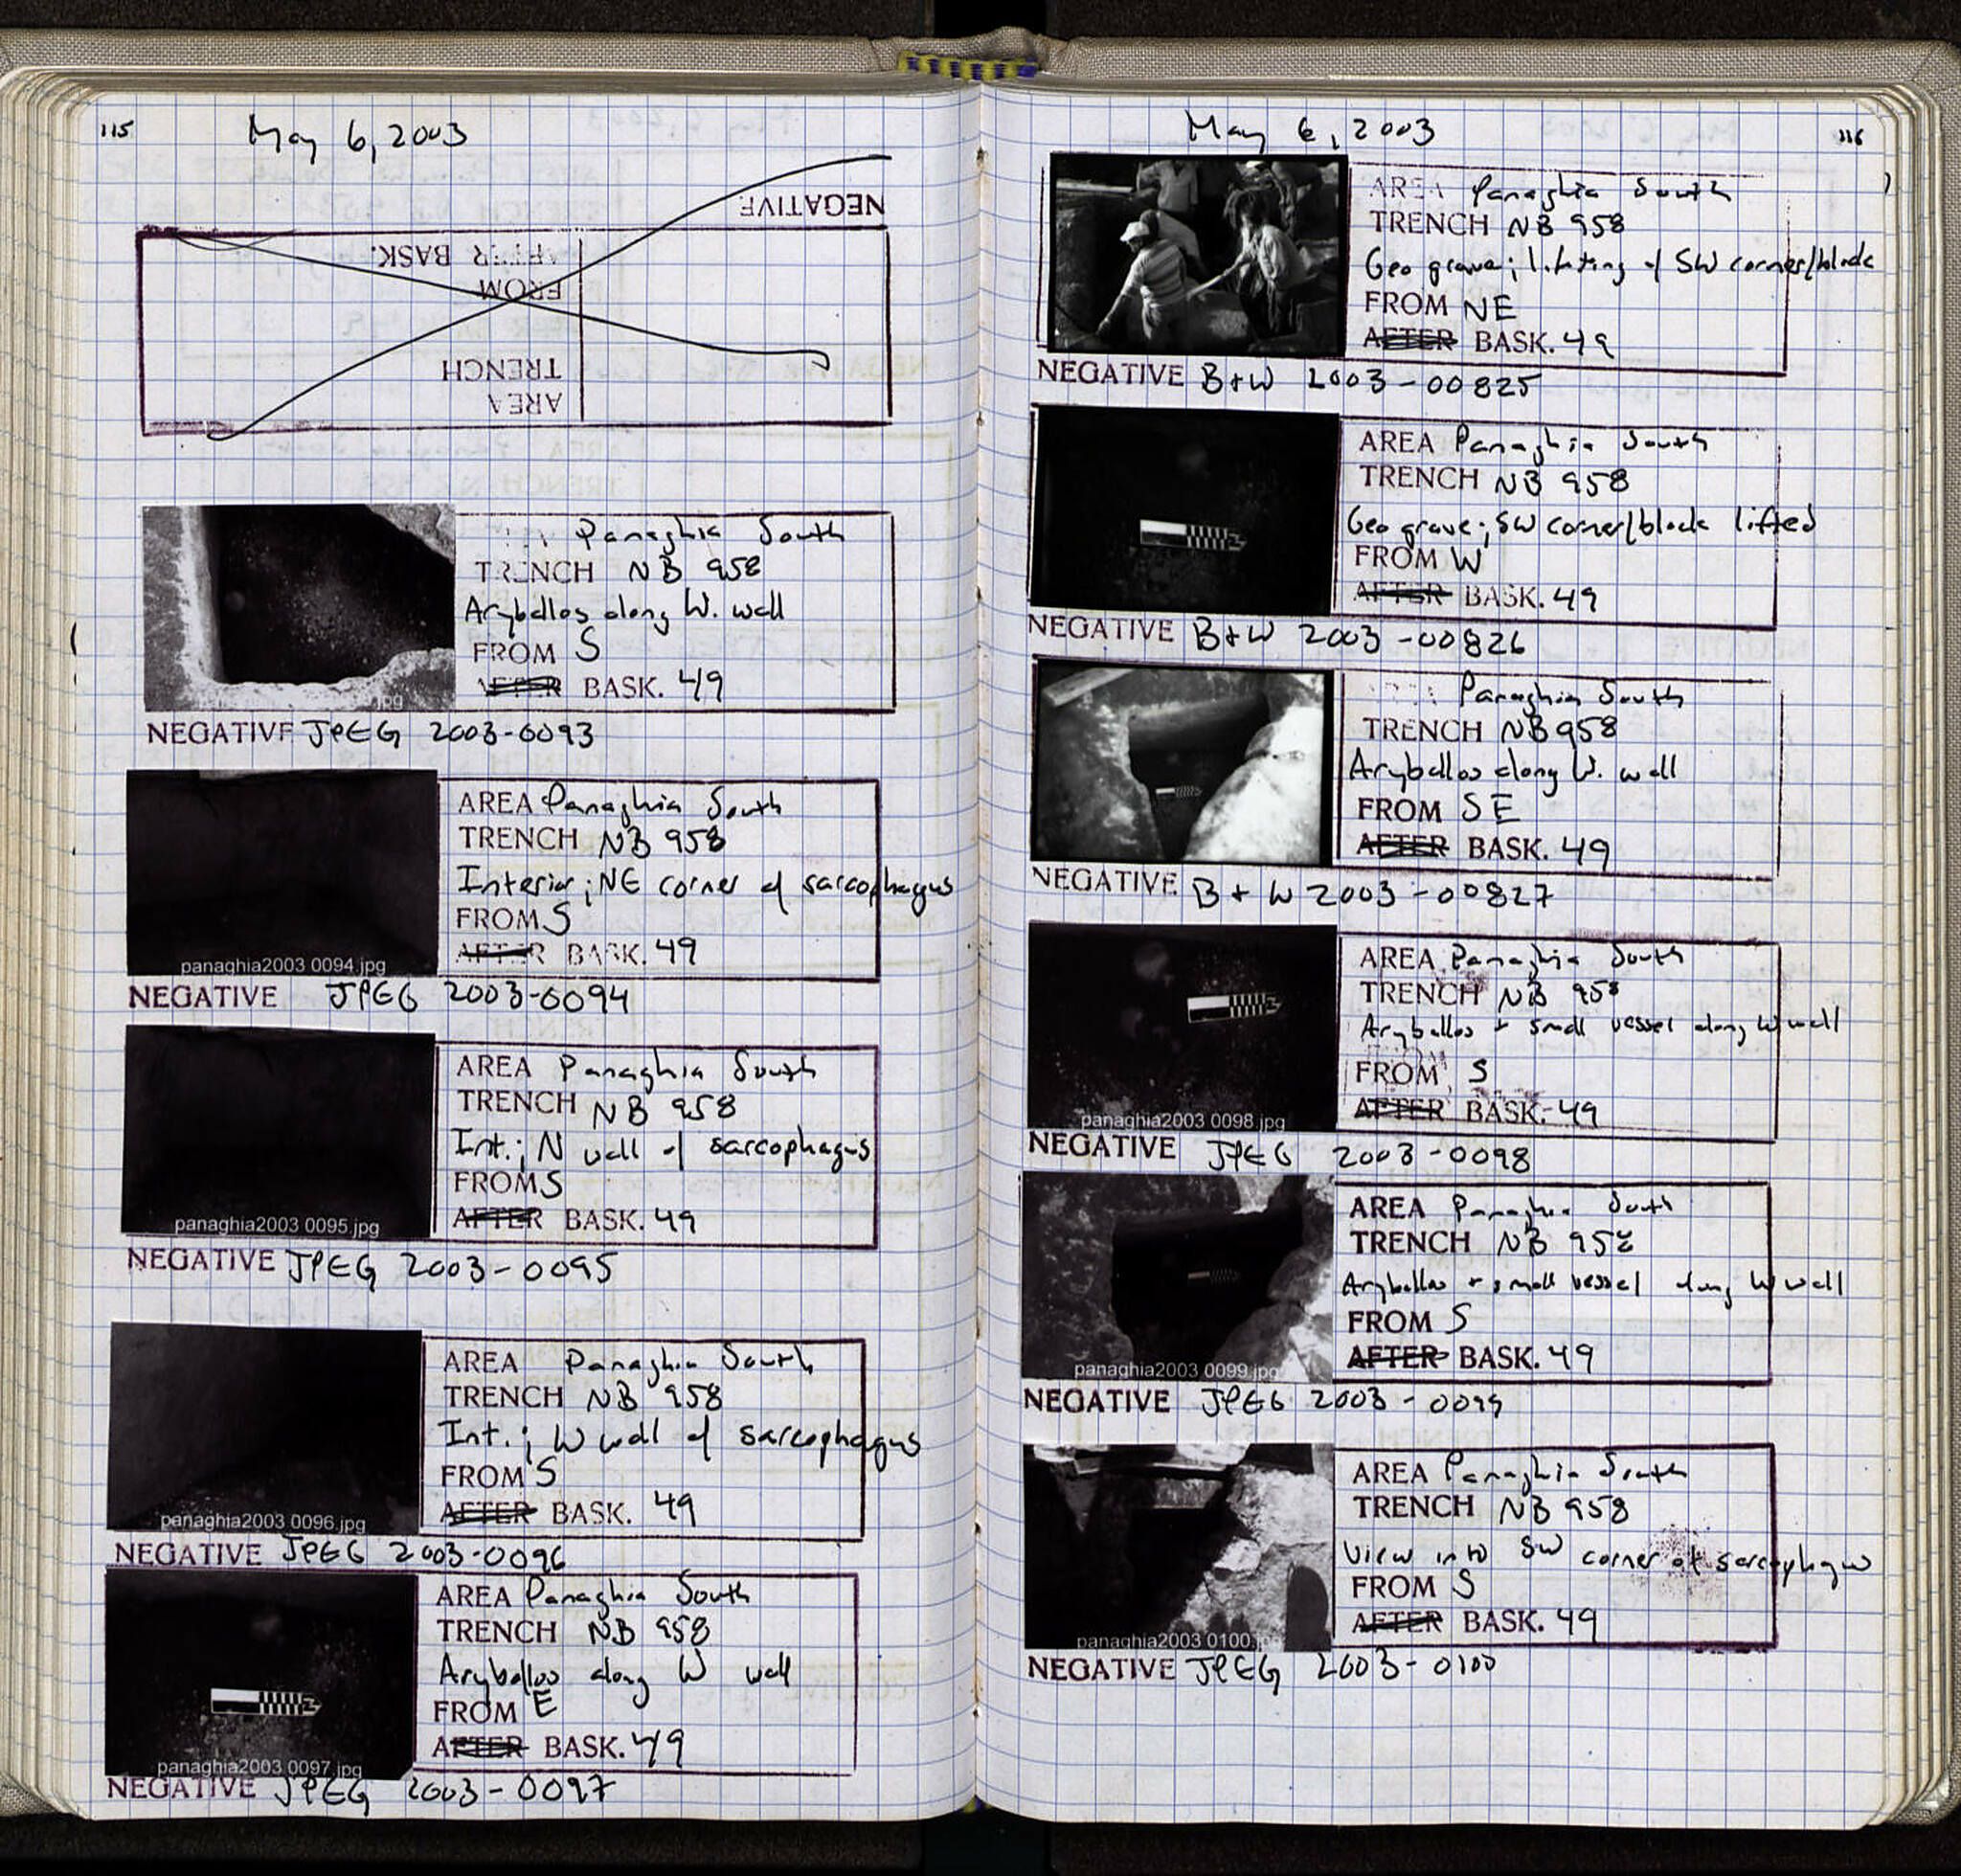 115
May 6, 2003
NEGATIVE
AFTER BASK.
FROM
TRENCH
AREA
Panaghia South
TRENCH NB 958
Aryballos along W. wall
FROM S
AFTER BASK. 49
NEGATIVE JPEG 2003-0093
AREA Panaghia South
TRENCH NB 958
Interior; NE corner of sarcophagus
FROM S
AFTER BASK. 49
panaghia2003 0094.jpg
NEGATIVE JPEG 2003-0094
AREA Panaghia South
TRENCH NB 958
Int.; N wall of sarcophagus
FROM S
AFTER BASK. 49
panaghia2003 0095.jpg
NEGATIVE JPEG 2003-0095
AREA Panaghia South
TRENCH NB 958
Int.; W wall of sarcophagus
FROM S
AFTER BASK. 49
panaghia2003 0096.jpg
NEGATIVE JPEG 2003-0096
AREA Panaghia South
TRENCH NB 958
Aryballos along W wall
FROM E
AFTER BASK. 49
panaghia2003 0097.jpg
NEGATIVE JPEG 2003-0097
May 6, 2003
116
AREA Panaghia South
TRENCH NB 958
Geo grave; lifting of SW corner/block
FROM NE
AFTER BASK. 49
NEGATIVE B+W 2003-00825
AREA Panaghia South
TRENCH NB 958
Geo grave; SW corner/block lifted
FROM W
AFTER BASK. 49
NEGATIVE B+W 2003-00826
AREA Panaghia South
TRENCH NB 958
Aryballos along W. wall
FROM SE
AFTER BASK. 49
NEGATIVE B+W 2003-00827
AREA Panaghia South
TRENCH NB 958
Aryballos + small vessel along W wall
FROM S
AFTER BASK. 49
panaghia2003 0098.jpg
NEGATIVE JPEG 2003-0098
AREA Panaghia South
TRENCH NB 958
Aryballos + small vessel along W wall
FROM S
AFTER BASK. 49
panaghia2003 0099.jpg
NEGATIVE JPEG 2003-0099
AREA Panaghia South
TRENCH NB 958
View into SW corner of sarcophagus
FROM S
AFTER BASK. 49
panaghia2003 0100.jpg
NEGATIVE JPEG 2003-0100